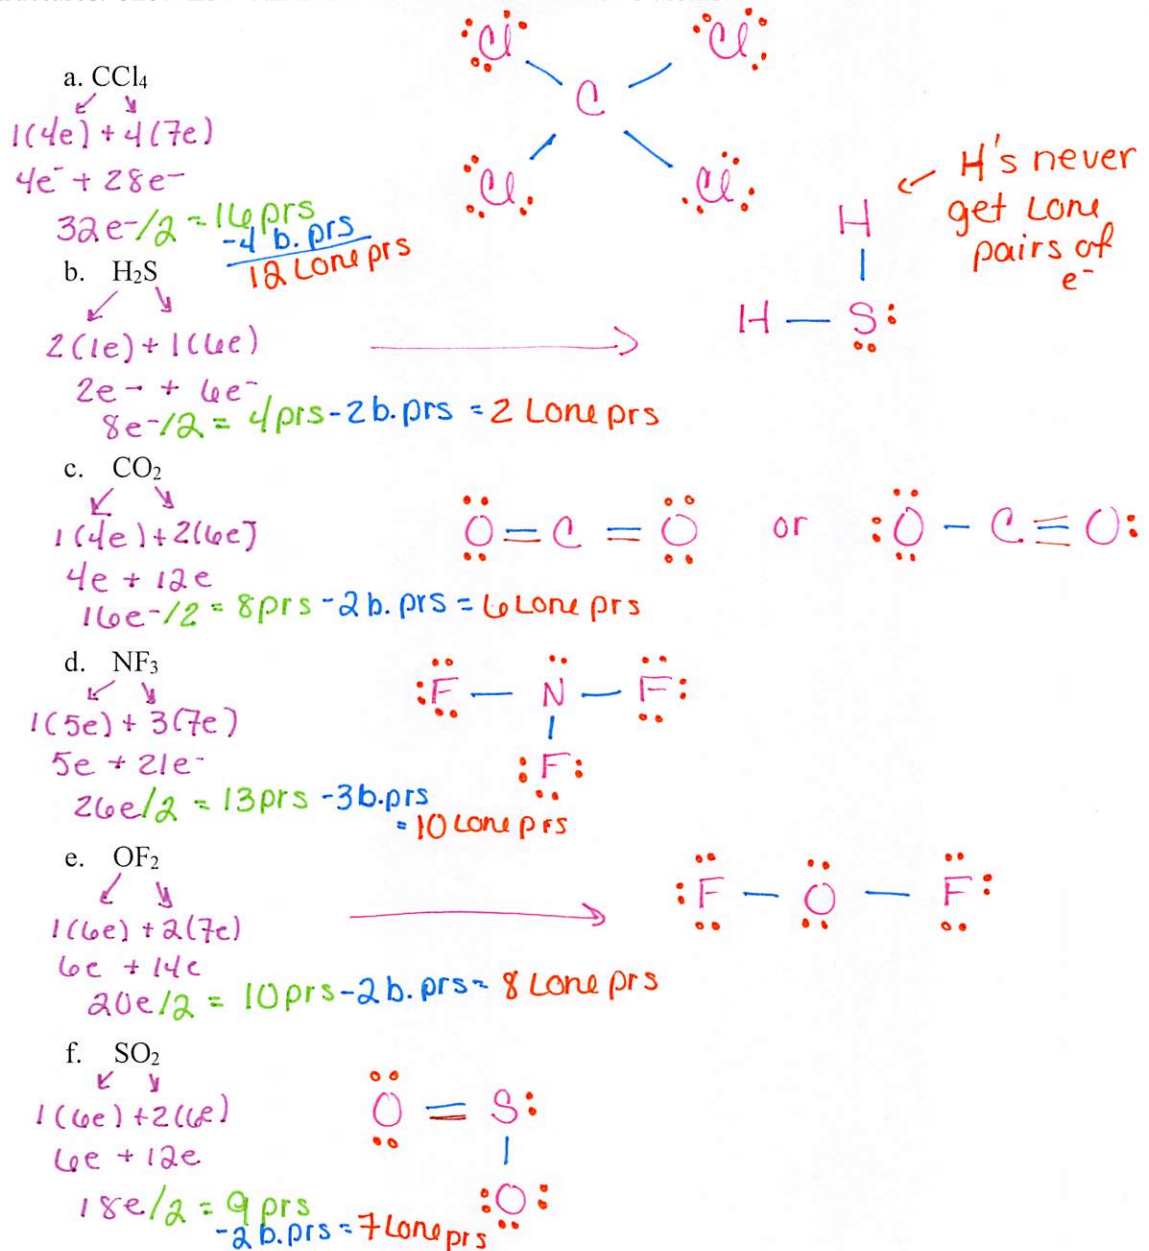 a. CCl₄
1(4e) + 4(7e)
4e⁻ + 28e⁻
32e⁻/2 = 16 prs
-4 b. prs
12 Lone prs
Cl Cl
C
Cl Cl
H's never
get Lone
pairs of
e⁻
b. H₂S
2(1e) + 1(6e)
2e⁻ + 6e⁻
8e⁻/2 = 4 prs - 2 b. prs = 2 Lone prs
H
H — S
c. CO₂
1(4e) + 2(6e)
4e + 12e
16e⁻/2 = 8 prs - 2 b. prs = 6 Lone prs
O = C = O or O - C ≡ O
d. NF₃
1(5e) + 3(7e)
5e + 21e⁻
26e/2 = 13 prs - 3 b. prs
= 10 Lone prs
F — N — F
F
e. OF₂
1(6e) + 2(7e)
6e + 14e
20e/2 = 10 prs - 2 b. prs = 8 Lone prs
F — O — F
f. SO₂
1(6e) + 2(6e)
6e + 12e
18e/2 = 9 prs
-2 b. prs = 7 Lone prs
O = S
O